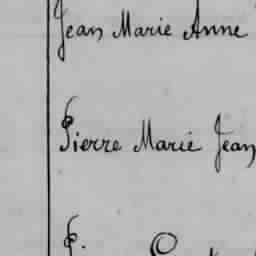 Jean Marie Anne
Pierre Marie Jean